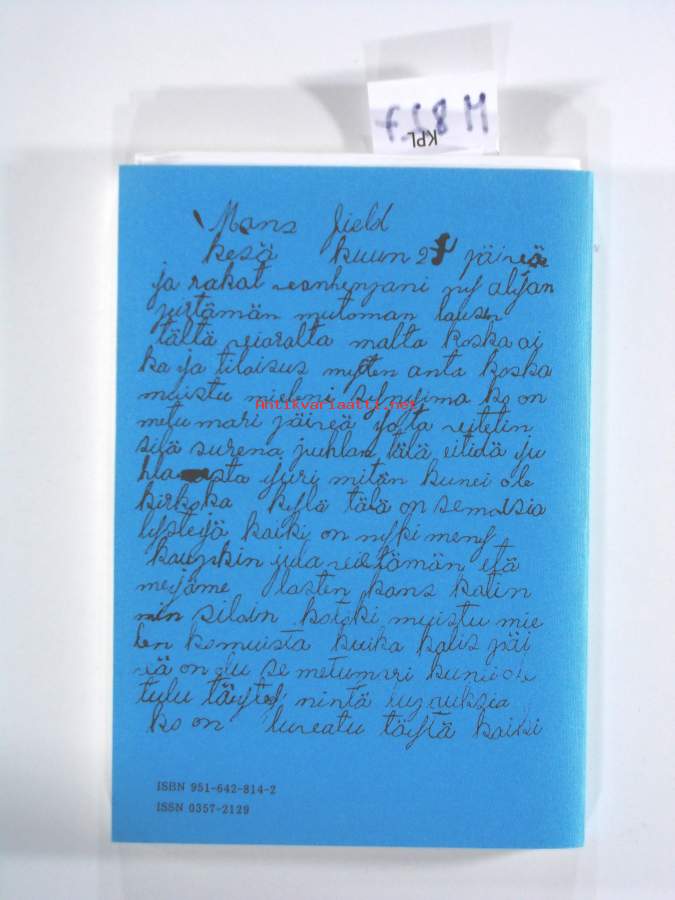 F.58 M
KPL
Mans field
kesä kuun 27 päivä
ja rakat vanhenpani nyt aljan
virtämän mutoman lausen
tältä vioralta malta koska ai
ka ja tilaisus myöten anta koska
muistu mieleni syntyima ko on
metu mari päivä jolta vietetin
sitä surena juhlan tälä eitidä ju
hla sta juri mitän kunei ole
kirkoka kylä tälä on semosia
lysteijä kaiki on nyki meny
kaupkin jula vietämän etä
meijäme lasten kans katin
niin siloin kotoki muistu mie
len ko muista kuika kalis päi
vä on olu se metumari kunei ole
tulu täytety nintä lupauksia
ko on luvatu täytä kaiki
Antikvariaatti.net
ISBN 951-642-814-2
ISSN 0357-2129